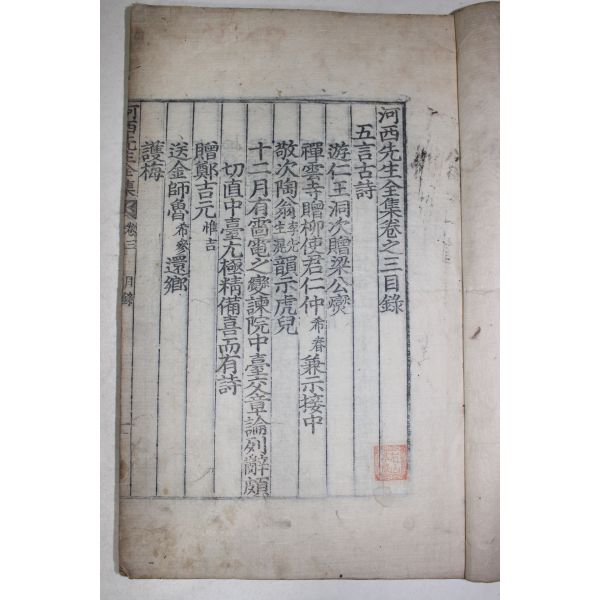 河西先生全集卷之三目錄
五言古詩
遊仁王洞次贈梁公燮
禪雲寺贈柳使君仁仲希春兼示接中
敬次陶翁李先生滉韻示虎兒
十二月有雷電之變諫院中臺交章論列辭頗
切直中臺尤極精備喜而有詩
贈鄭吉元惟吉
送金師魯希參還鄉
護梅
河西先生全集 卷三 目錄